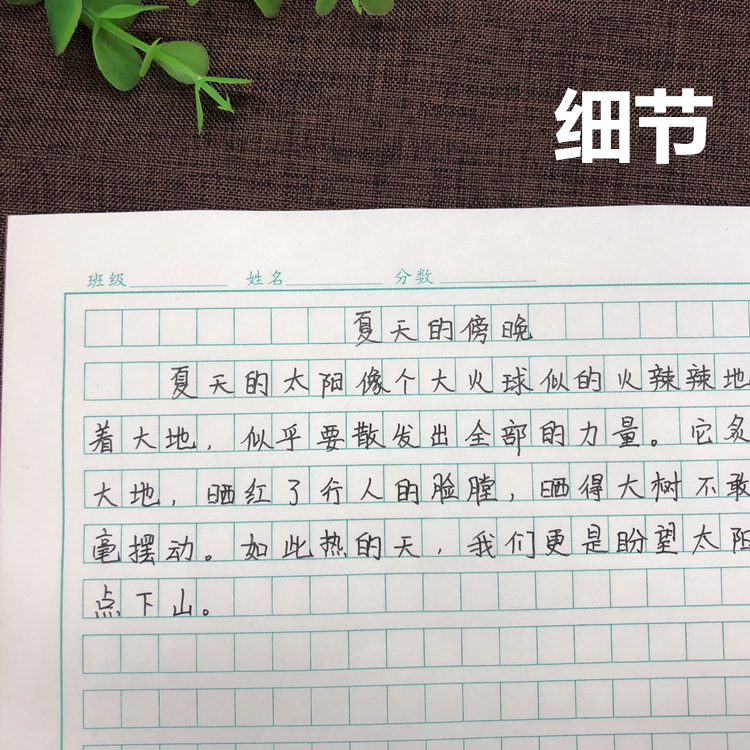 细节
班级 姓名 分数
夏天的傍晚
夏天的太阳像个大火球似的火辣辣地
着大地，似乎要散发出全部的力量。它炙
大地，晒红了行人的脸膛，晒得大树不敢
毫摆动。如此热的天，我们更是盼望太阳
点下山。